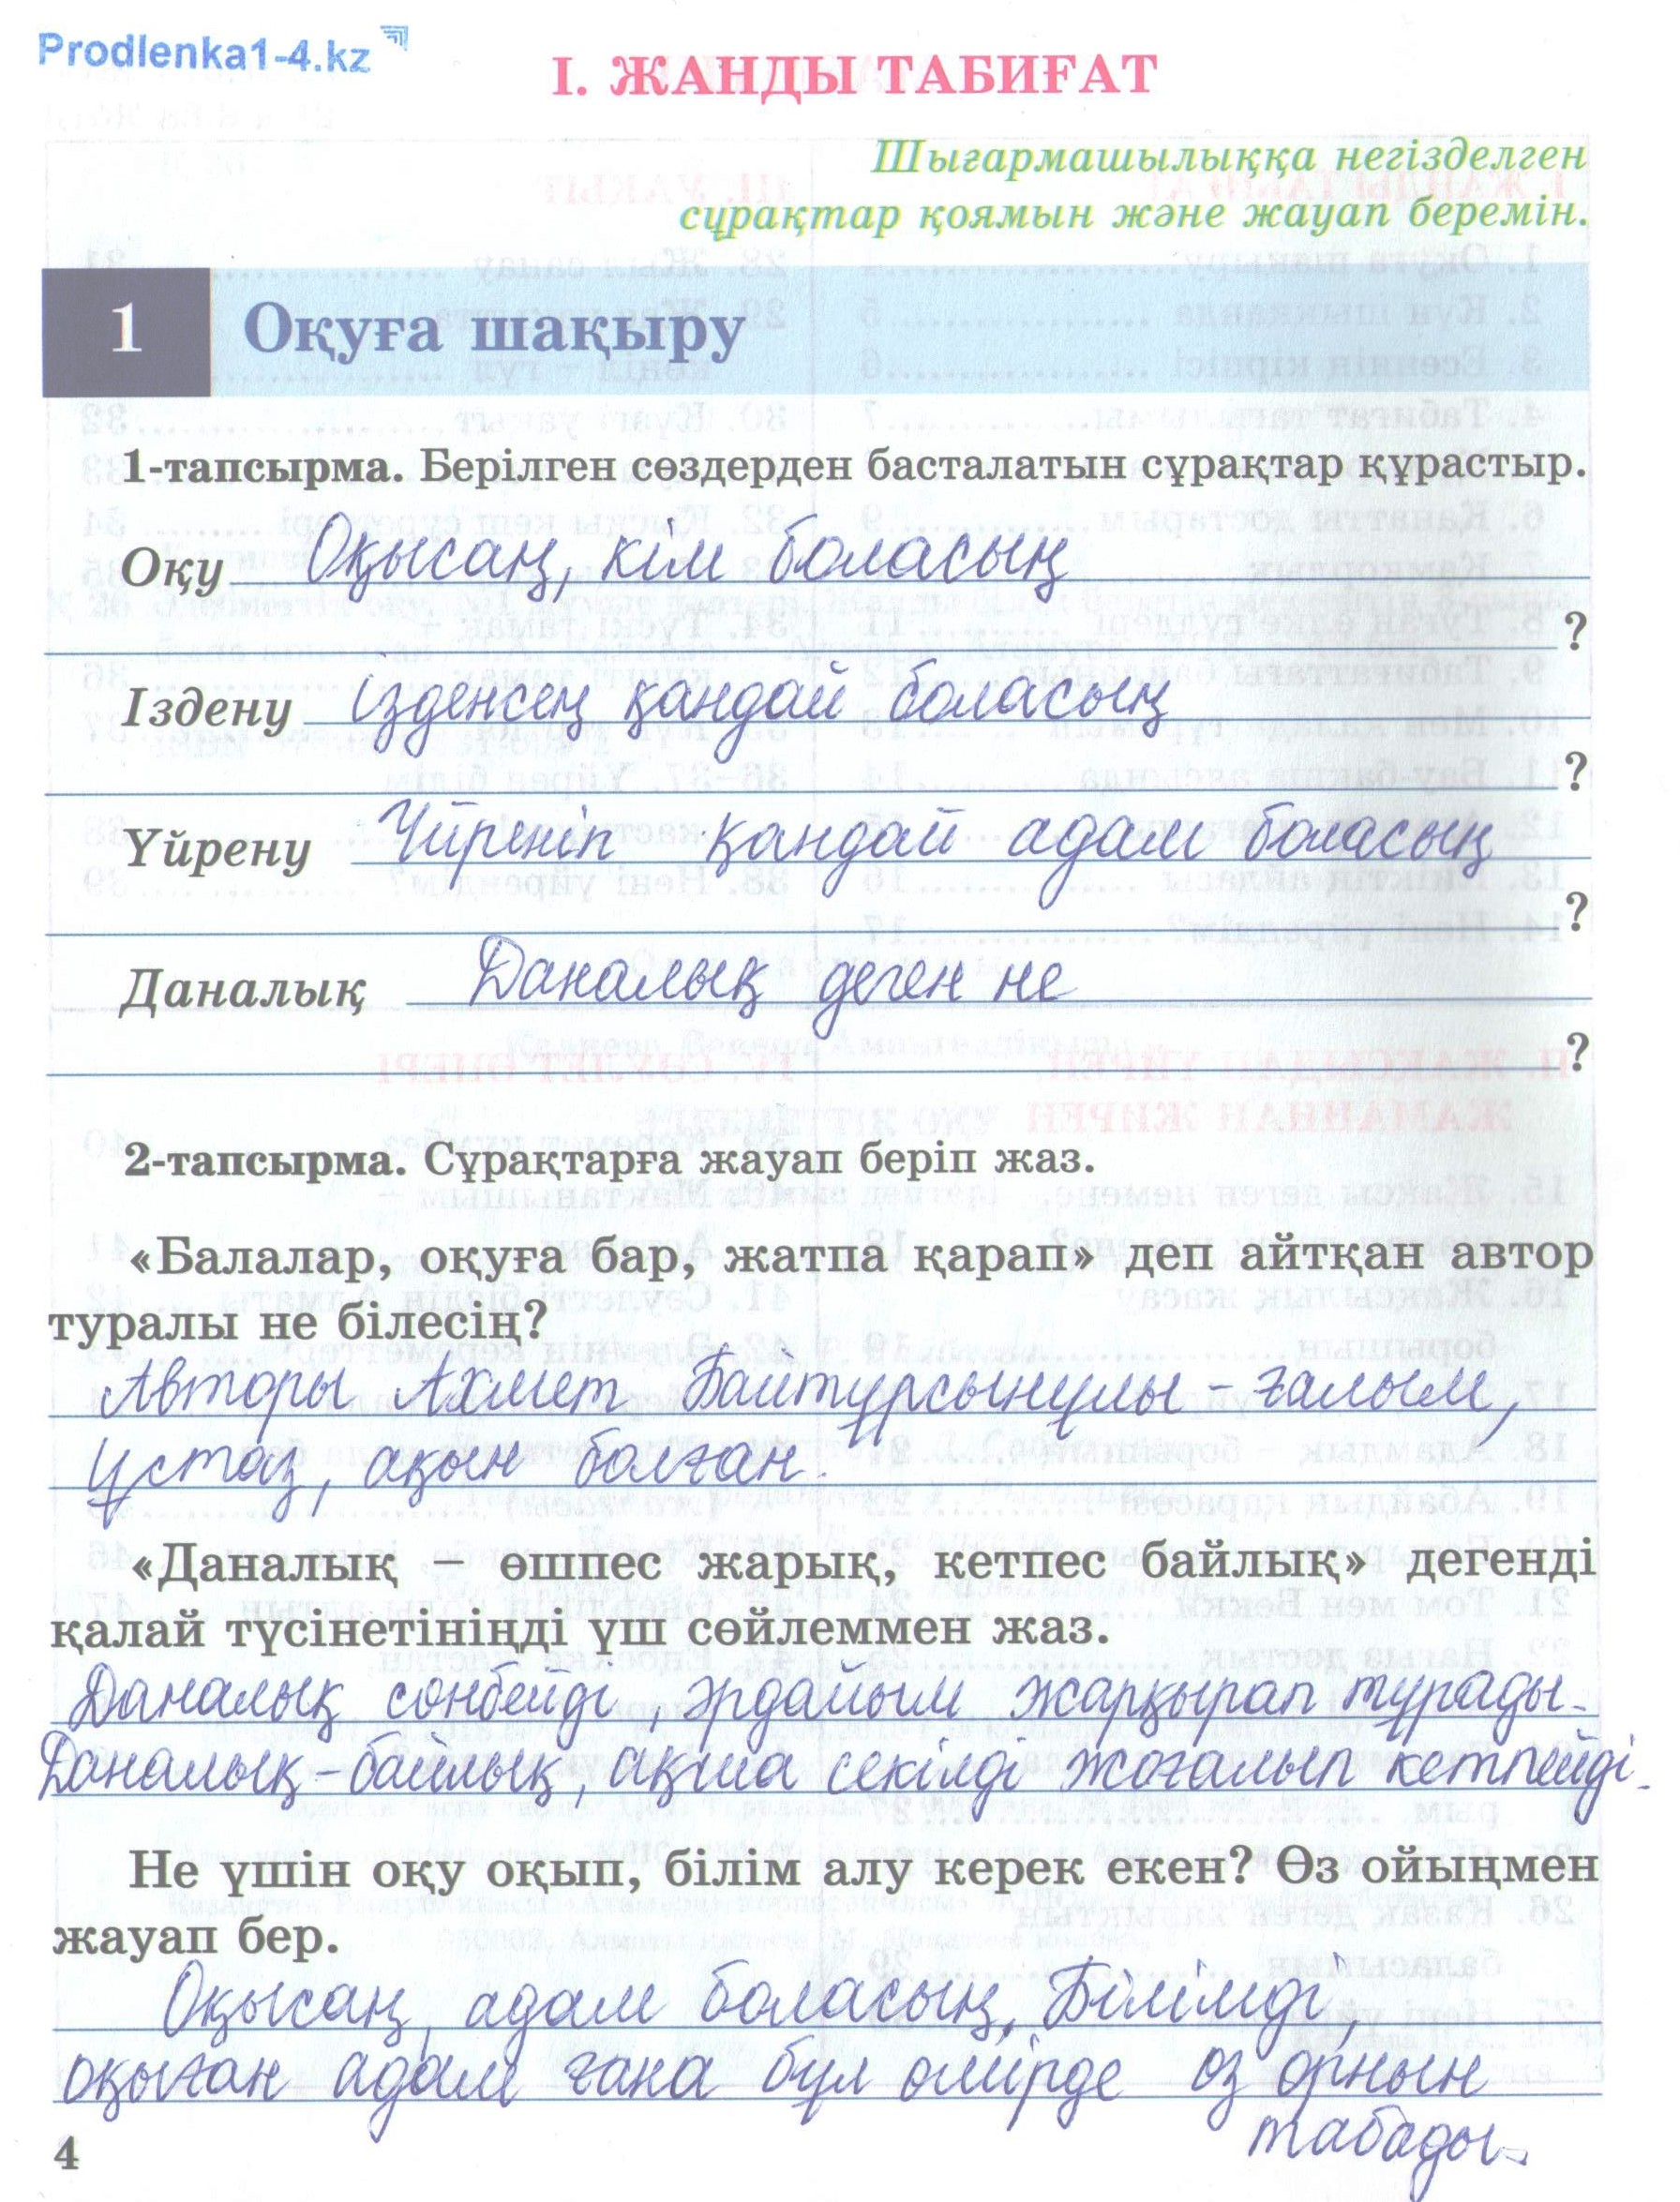 Prodlenka1-4.kz
I. ЖАНДЫ ТАБИҒАТ
Шығармашылыққа негізделген
сұрақтар қоямын және жауап беремін.
1 Оқуға шақыру
1-тапсырма. Берілген сөздерден басталатын сұрақтар құрастыр.
Оқу Оқысаң, кім боласың
?
Іздену ізденсең қандай боласың
?
Үйрену Үйреніп қандай адам боласың
?
Даналық Даналық деген не
?
2-тапсырма. Сұрақтарға жауап беріп жаз.
«Балалар, оқуға бар, жатпа қарап» деп айтқан автор
туралы не білесің?
Авторы Ахмет Байтұрсынұлы – ғалым,
ұстаз, ақын болған.
«Даналық – өшпес жарық, кетпес байлық» дегенді
қалай түсінетініңді үш сөйлеммен жаз.
Даналық сөнбейді, әрдайым жарқырап тұрады.
Даналық – байлық, ақша секілді жоғалып кетпейді.
Не үшін оқу оқып, білім алу керек екен? Өз ойыңмен
жауап бер.
Оқысаң, адам боласың. Білімді,
оқыған адам ғана бұл өмірде өз орнын
табады.
4